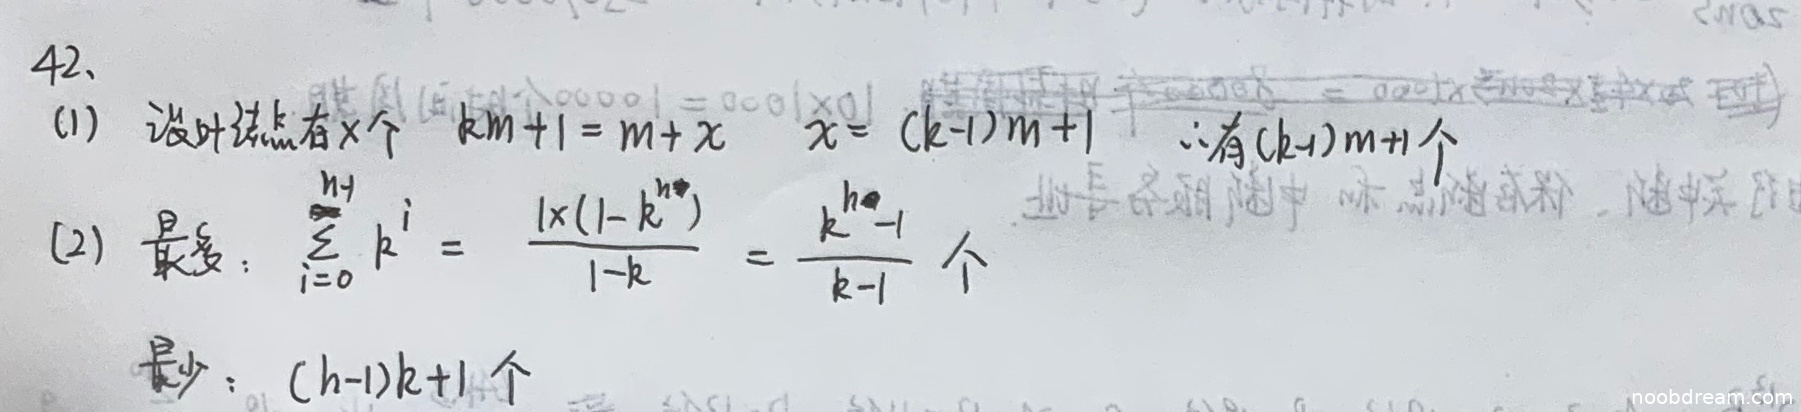 42、
(1) 设叶结点有x个 km+1=m+x x=(k-1)m+1 ∴有(k-1)m+1个
(2) 最多: \sum_{i=0}^{h-1} k^i = \frac{1×(1-k^h)}{1-k} = \frac{k^h-1}{k-1} 个
最少: (h-1)k+1 个
noobdream.com